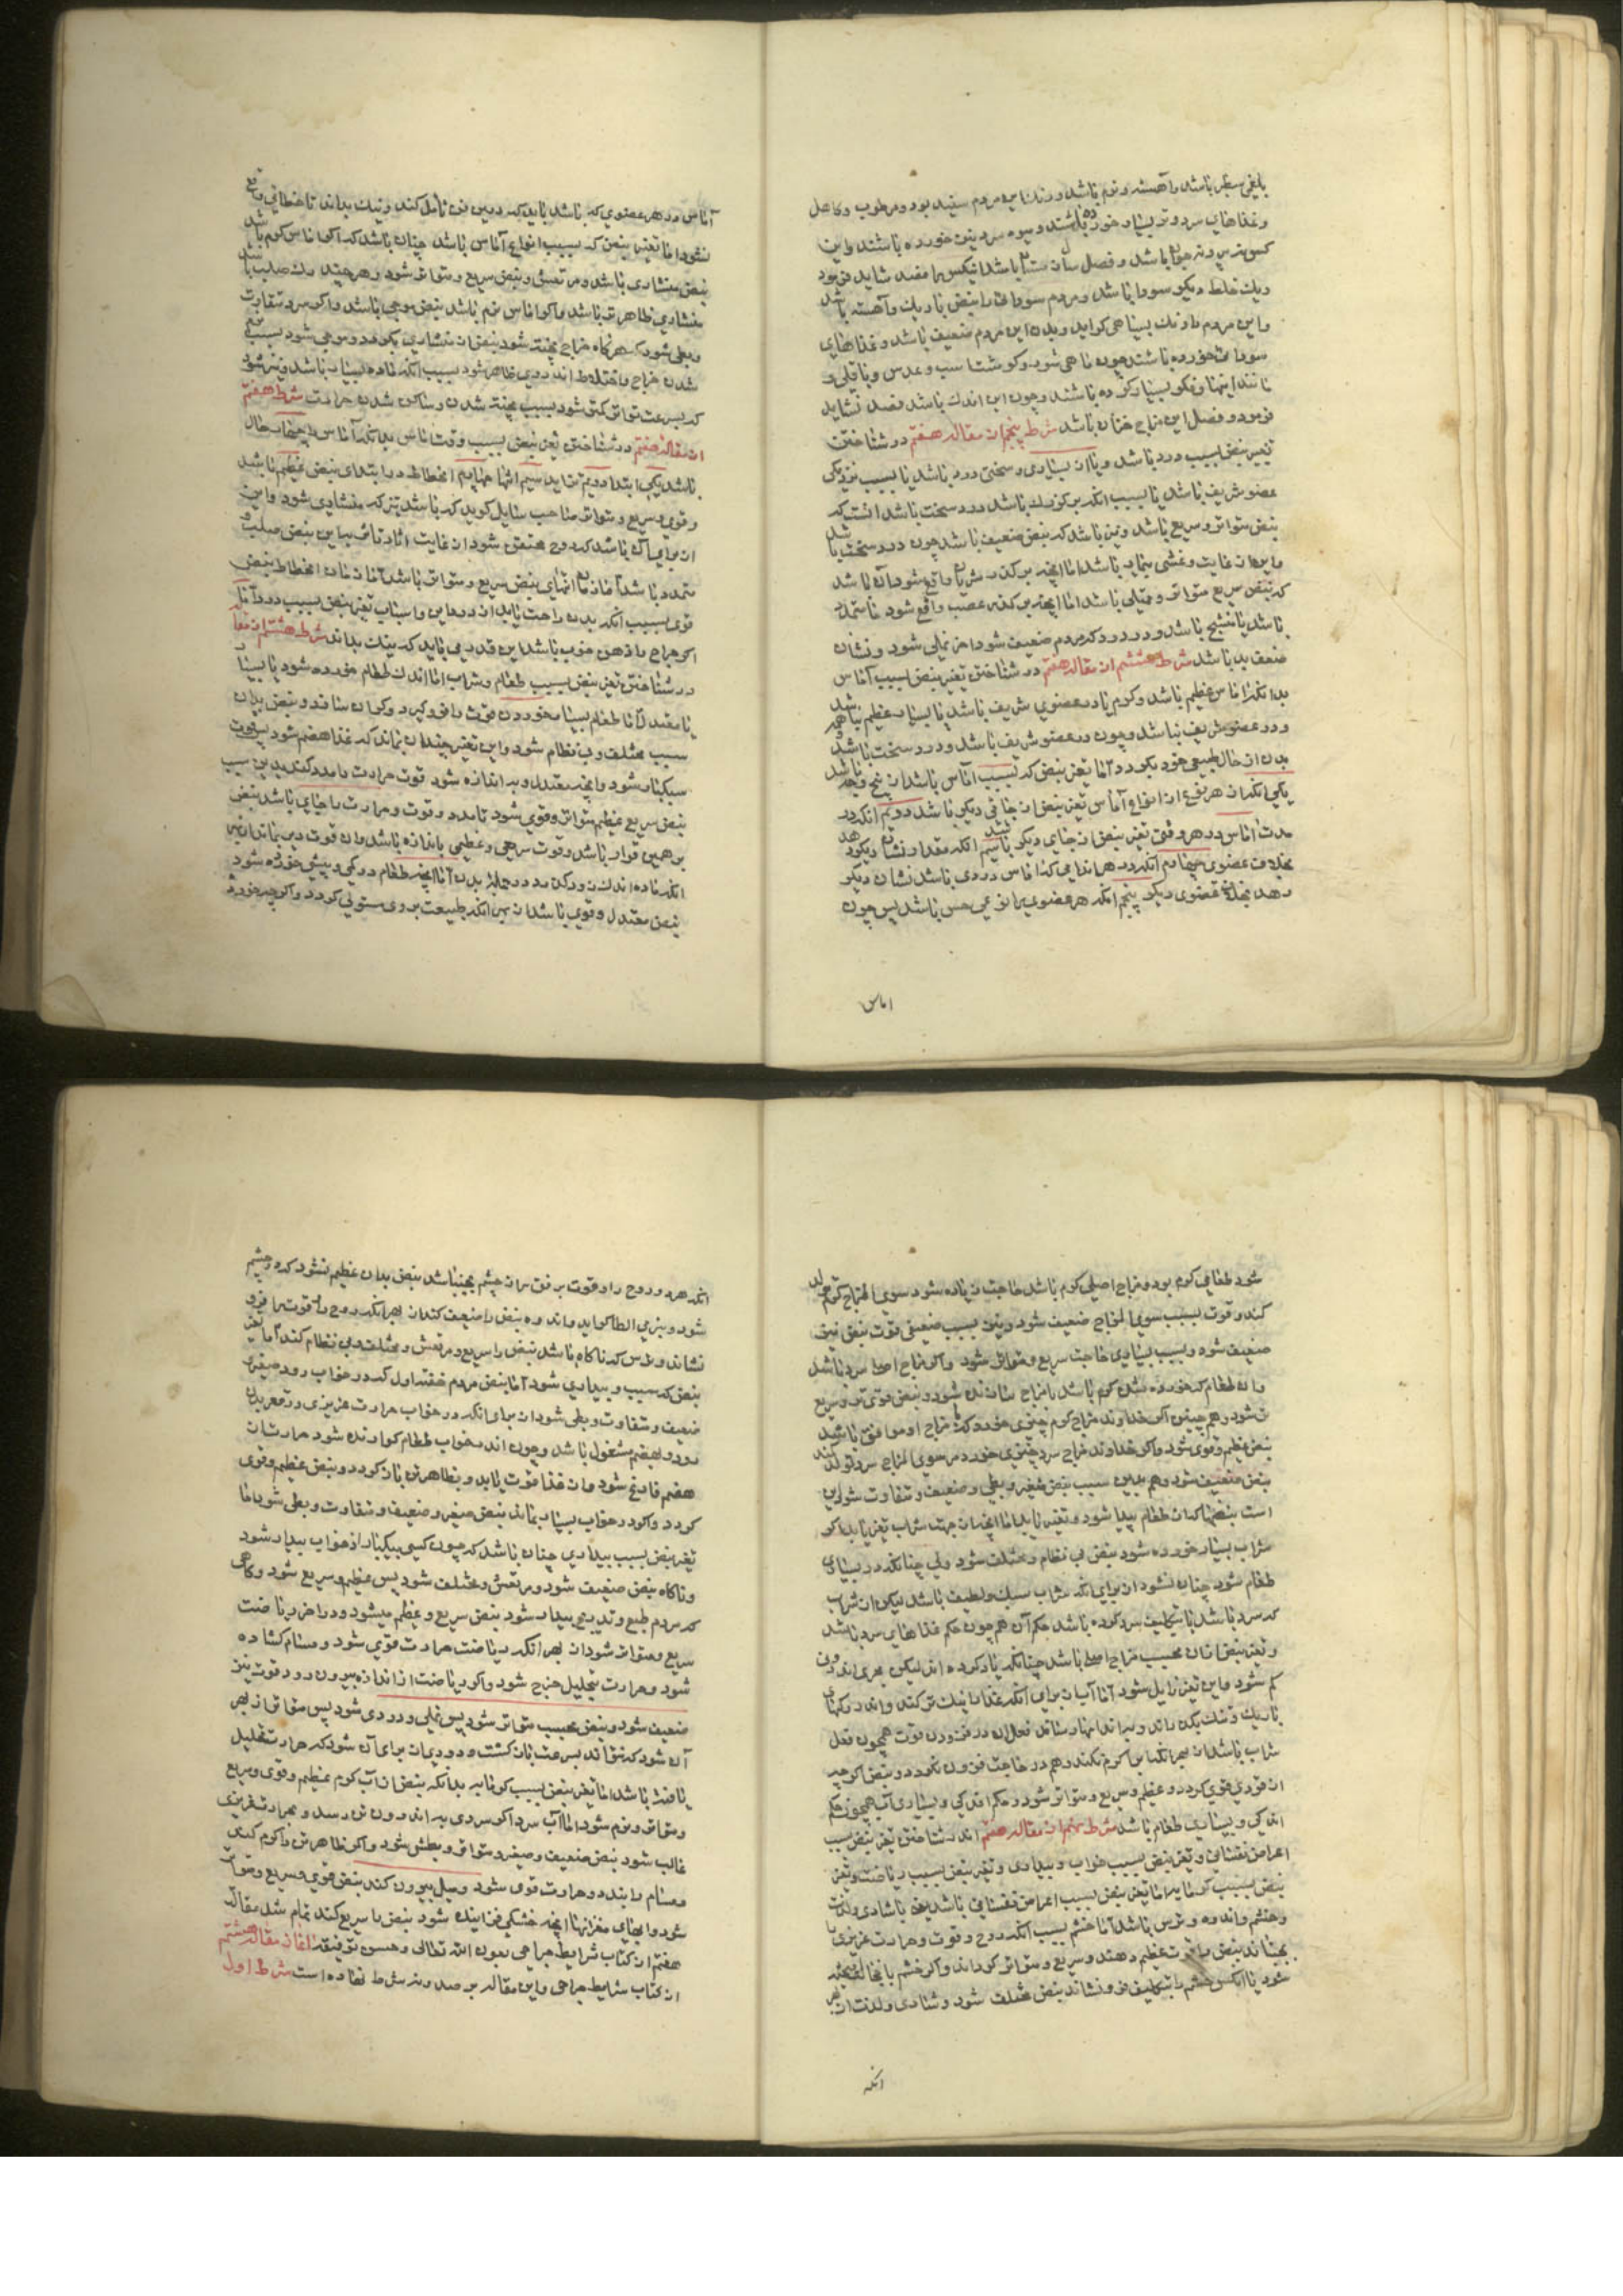 بلغمی سطبر باشد و آهسته و نرم باشد و رنک این مردم سفید بود و مرطوب و کاهل
و غذاهای سرد و تر بسیار خورده باشند و میوه سرد بین خورده باشند و این
کس و فصل باشد فصد شاید فرمود
و یک خلط دیکر سودا باشد و مردم سودا را نبض باریک و آهسته باشد
و این مردم را رنک بسیاهی کراید و بدن این مردم ضعیف باشد و غذاهای
خورده باشند چون ماهی شور و کوشت اسب و عدس و باقلی و
مانند اینها و فکر بسیار کرده باشند و چون این اندک باشد فصد نشاید
فرمود و فصل این مزاج خزان باشد شرط پنجم از مقاله هفتم در شناختن
تغیر نبض بسبب درد باشد و یا از بسیاری و سختی درد باشد یا بسبب نزدیکی
عضو شریف باشد یا بسبب انکه بزرک باشد درد سخت باشد انست که
نبض متواتر و سریع باشد و نیز باشد که نبض ضعیف باشد چون درد سخت باشد
که نبض سریع متواتر و ممتلی باشد اما انچه بر کذر عصب واقع شود
باشد یا تشنج باشد و در درد که مردم ضعیف شود اخر نملی شود و نشان
ضعف بد باشد شرط ششم از مقاله هفتم در شناختن تغیر نبض بسبب آماس
بدانکه اماس عظیم باشد و کرم یا در عضوی شریف باشد یا بسیار عظیم نباشد
و در عضو شریف نباشد و چون در عضو شریف باشد و درد سخت باشد همه
بدن از حال طبیعی خود بکردد اما تغیر نبض که بسبب اماس باشد از پنج وجه باشد
یکی انکه از هر نوع از انواع آماس تغیر نبض از جای دیکر باشد دویم انکه در
مدت اماس در هر وقتی تغیر نبض از جای دیکر باشد سیم انکه مقدار و نشان دیکر دهد
بخلاف عضوی چهارم انکه در هر اندامی که اماس دردی باشد نشان دیکر
دهد بخلاف عضوی دیکر پنجم انکه هر عضوی را نوعی حس باشد پس چون
اماس
آماس در هر عضوی که باشد باید که درین فن تأمل کند و نیک بداند تا خطائی واقع
نشود اما تغیر نبض که بسبب انواع آماس باشد چنان باشد که اکر اماس کرم باشد
نبض منشاری باشد و مرتعش و نبض سریع و متواتر شود و هر چند رک صلب باشد
منشاری ظاهرتر باشد و اکر اماس نرم باشد نبض موجی باشد و اکر سرد متفاوت
و بطی شود و هر کاه خراج پخته شود نبض از منشاری بکردد و موجی شود بسبب نرم
شدن خراج و اختلاط اندر وی ظاهر شود بسبب انکه ماده بسیار باشد و نیز شود
که بسرعت تواتر کمتر شود بسبب پخته شدن و ساکن شدن حرارت شرط هفتم
از مقاله هفتم در شناختن تغیر نبض بسبب وقت اماس بدانکه آماس را چهار حال
باشد یکی ابتدا دویم تزاید سیم انتها چهارم انحطاط در ابتدای نبض عظیم باشد
و قوی و سریع و متواتر صاحب سایل کوید که باشد نیز که منشاری شود و این
متمدد باشد اما زمان انتهای نبض سریع و متواتر باشد اما زمان انحطاط نبض
قوی بسبب انکه بدن راحت یابد از درد این و اسباب تغیر نبض بسبب درد آماس
اکر جراح را ذهن خوب باشد این قدر می باید که نیک بداند شرط هشتم از مقاله
در شناختن تغیر نبض بسبب طعام و شراب اما اندک طعام خورده شود یا بسیار
یا معتدل اما طعام بسیار خوردن قوت را فرو کیرد و کران سازد و نبض بدان
سبب مختلف و بی نظام شود و این تغیر چندان بماند که غذا هضم شود پس قوت
سبکبار شود و انچه معتدل و به اندازه شود قوت حرارت را مدد کند بدین سبب
نبض سریع عظیم متواتر و قوی شود تا مدد و قوت و حرارت بر جای باشد نبض
بر همین قرار باشد و قوت سریعی و عظیمی باندازه باشد و ان قوت دیر بماند از بهر
انکه ماده اندک زود کذرد در جمله بدن اما انچه طعام در کمی و بیشی خورده شود
نبض معتدل و قوی باشد از بهر انکه طبیعت بر وی مستولی کردد و اکر چه خورده
شود طعامی کرم بود و مزاج اصلی کرم باشد حاجت زیاده شود سوء المزاج کرم تولد
کند و قوت بسبب سوء المزاج ضعیف شود و نیز بسبب ضعیفی قوت نبض نیز
ضعیف شود و بسبب بسیاری حاجت سریع و متواتر شود و اکر مزاج اصلی سرد باشد
و ان طعام که خورده شد کرم باشد با مزاج سازنده شود و نبض قوی تر و سریع
تر شود و همچنین اکر خداوند مزاج کرم چیزی خورد که مزاج او موافق باشد
نبض عظیم و قوی شود و اکر خداوند مزاج سرد چیزی خورد سرد سوء المزاج سرد تولد کند
نبض ضعیف شود و هم بدین سبب نبض صغیر و بطی و ضعیف و متفاوت شود این
است نبضها که از طعام پیدا شود و تغیر یابد اما انچه از جهت شراب تغیر یابد اکر
شراب بسیار خورده شود نبض بی نظام و مختلف شود ولی چنانکه در بسیاری
طعام شود چنان نشود از برای انکه شراب سبک و لطیف باشد لیکن ان شراب
که سرد باشد یا بتکلیف سرد کرده باشد حکم آن همچون حکم غذاهای سرد باشد
و تغیر نبض ازان بحسب مزاج اصلی باشد چنانکه یاد کرده اند لیکن
کم شود و این تغیر زایل شود اما آب از برای انکه غذا را نیک تر کند و اندر رکهای
باریک و تنک بکذراند و به اندامها رساند فعل ان در فزودن قوت همچون فعل
شراب باشد از بهر انکه کرم نکند و هم در حاجت فزون نکردد و نبض اکر چه
ازو قوی کردد و عظیم و سریع و متواتر شود و حکم اندکی و بسیاری آب همچون حکم
اندکی و بسیاری طعام باشد شرط نهم از مقاله هفتم اندر شناختن تغیر نبض بسبب
اعراض نفسانی و تغیر نبض بسبب خواب و بیداری و تغیر نبض بسبب ریاضت و تغیر
نبض بسبب کرمابه اما تغیر نبض بسبب اعراض نفسانی باشد یعنی باشادی و لذت
و خشم و اندوه و ترس باشد اما خشم بسبب انکه روح و قوت و حرارت غریزی را
بجنباند نبض را قوت عظیم دهند و سریع و متواتر کرداند و اکر خشم با خجالت
شود یا انکس خشم را بتکلیف فرو نشاند نبض مختلف شود و شادی و لذت از بهر
انکه
انکه هر دو روح را و قوت برفق بجنباند نبض بدان عظیم شود که در خشم
شود و بنرمی ابطا کراید و اندوه نبض را ضعیف کند از بهر انکه روح و قوت را فرو
نشاند و ترس که ناکاه باشد نبض را سریع و مرتعش و مختلف و بی نظام کند اما تغیر
نبض که بسبب و بیداری شود اما نبض مردم خفته اول که در خواب رود صغیر و
ضعیف و متفاوت و بطی شود از برای انکه در خواب حرارت غریزی در قعر بدن
رود و بهضم مشغول باشد و چون اندر خواب طعام کوارنده شود حرارت از
هضم فارغ شود و از غذا قوت یابد و بظاهر تن باز کردد و نبض عظیم و قوی
کردد و اکر در خواب بسیار بماند نبض صغیر و ضعیف و متفاوت و بطی شود اما
تغیر نبض بسبب بیداری چنان باشد که چون کسی بیکبار از خواب بیدار شود
و ناکاه نبض ضعیف شود و مرتعش و مختلف شود پس عظیم و سریع شود و کاهی
که مردم بطبع و تدریج بیدار شود نبض سریع و عظیم میشود و در اخر ریاضت
سریع و متواتر شود از بهر انکه ریاضت حرارت قوی شود و مسام کشاده
شود و حرارت بتحلیل خرج شود و اکر ریاضت از اندازه بیرون رود قوت نیز
ضعیف شود و نبض بحسب متواتر شود پس نملی و دودی شود پس متواتر از بهر
آن شود که نتواند بسرعت باز کشت و دودی از برای آن شود که حرارت تحلیل
یافته باشد اما تغیر نبض بسبب کرمابه بدانکه نبض از آب کرم عظیم و قوی و سریع
و متواتر و نرم شود اما آب سرد اکر سردی به اندرون تن رسد و بحرارت غریزی
غالب شود نبض ضعیف و صغیر و متواتر و بطی شود و اکر ظاهر تن را کرم کند
و مسام را ببندد و حرارت قوی شود و میل بیرون کند نبض قوی و سریع و متواتر
شود و ابهای انچه خشکی فزاینده شود نبض را سریع کند تمام شد مقاله
هفتم از کتاب شرایط جراحی بعون الله تعالی و حسن توفیقه اغاز مقاله هشتم
از کتاب شرایط جراحی و این مقاله بر صد و شرط نهاده است شرط اول